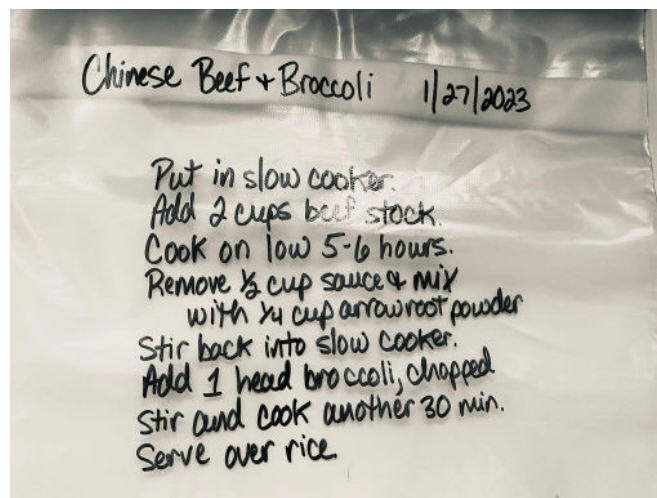 Chinese Beef + Broccoli 1/27/2023
Put in slow cooker.
Add 2 cups beef stock.
Cook on low 5-6 hours.
Remove ½ cup sauce & mix
with ¼ cup arrowroot powder
Stir back into slow cooker.
Add 1 head broccoli, chopped
Stir and cook another 30 min.
Serve over rice.